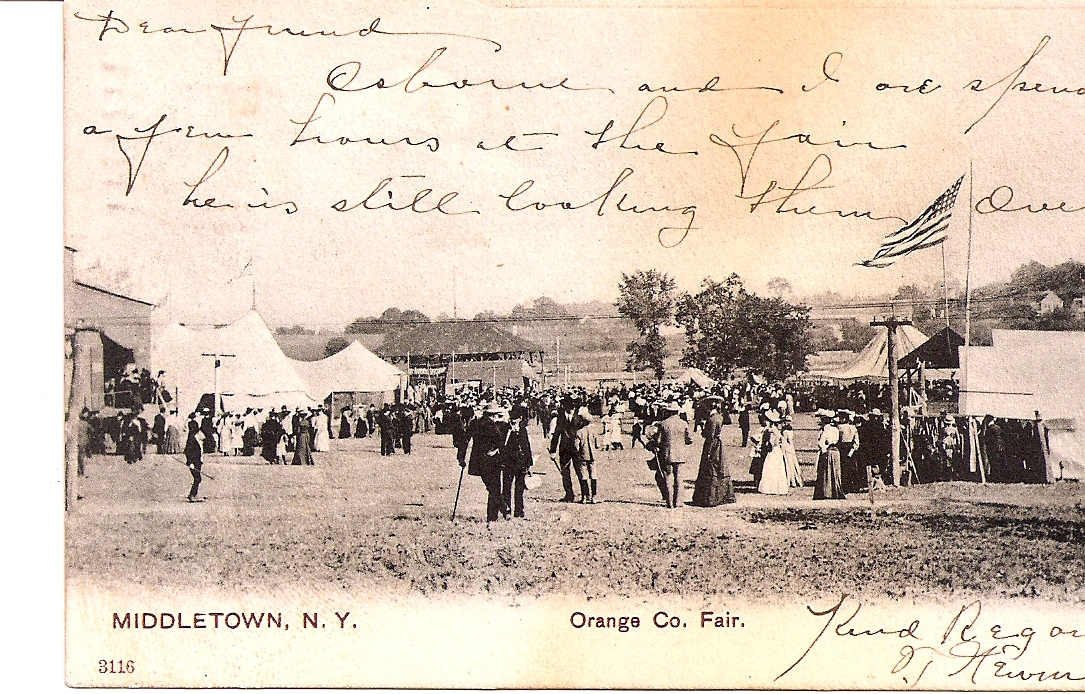 Dear friend
Osborne and I are spend
a few hours at the Fair
he is still looking them Over
MIDDLETOWN, N. Y.
Orange Co. Fair.
Kind Regar
3116